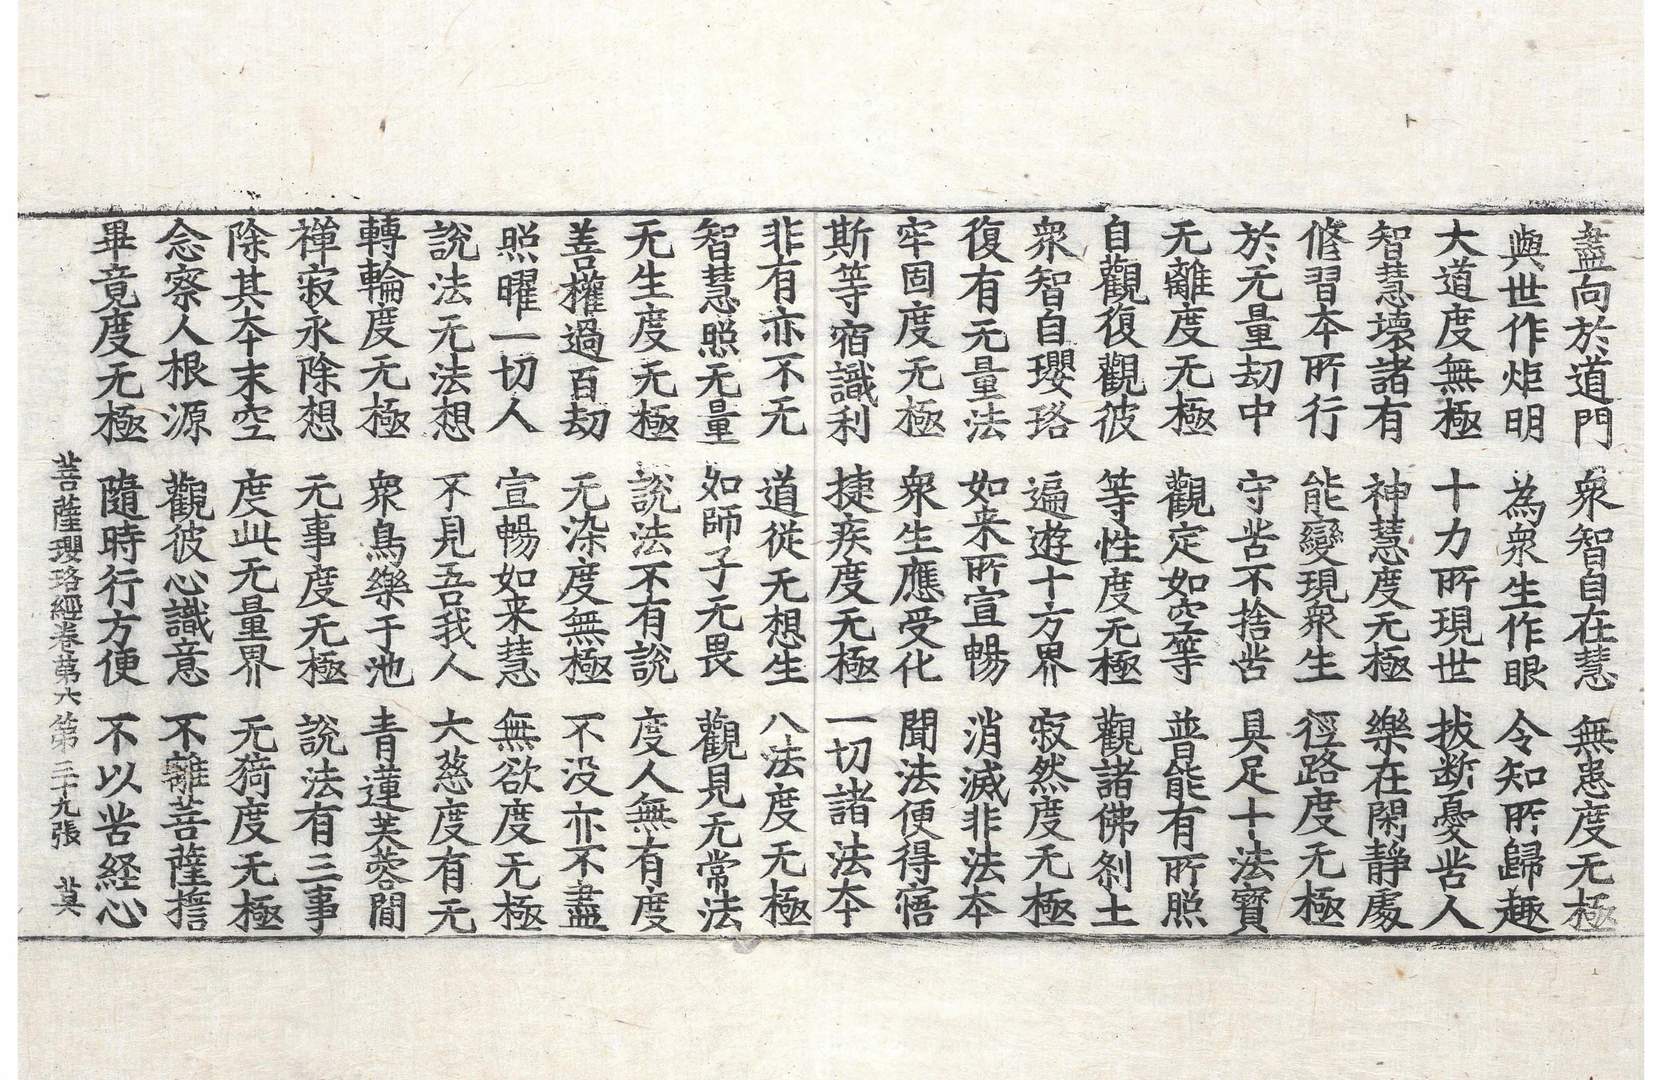 盡向於道門 衆智自在慧 無恚度无極
與世作炬明 為衆生作眼 令知所歸趣
大道度無極 十力所現世 拔断憂苦人
智慧壞諸有 神慧度无極 樂在閑靜處
修習本所行 能變現衆生 徑路度无極
於无量劫中 守苦不捨苦 具足十法寶
无離度无極 觀定如空等 普能有所照
自觀復觀彼 等性度无極 觀諸佛刹土
衆智自瓔珞 遍遊十方界 寂然度无極
復有无量法 如来所宣暢 消滅非法本
牢固度无極 衆生應受化 聞法便得悟
斯等宿識利 捷疾度无極 一切諸法本
非有亦不无 道從无想生 八法度无極
智慧照无量 如師子无畏 觀見无常法
无生度无極 說法不有說 度人無有度
善權過百劫 无染度無極 不没亦不盡
照曜一切人 宣暢如来慧 無欲度无極
說法无法想 不見吾我人 大慈度有无
轉輪度无極 衆鳥樂于池 青蓮芙蓉間
禅寂永除想 无事度无極 說法有三事
除其本末空 度此无量界 无猗度无極
念察人根源 觀彼心識意 不離菩薩擔
畢竟度无極 隨時行方便 不以苦経心
菩薩瓔珞經卷第六 第三十九張 莫